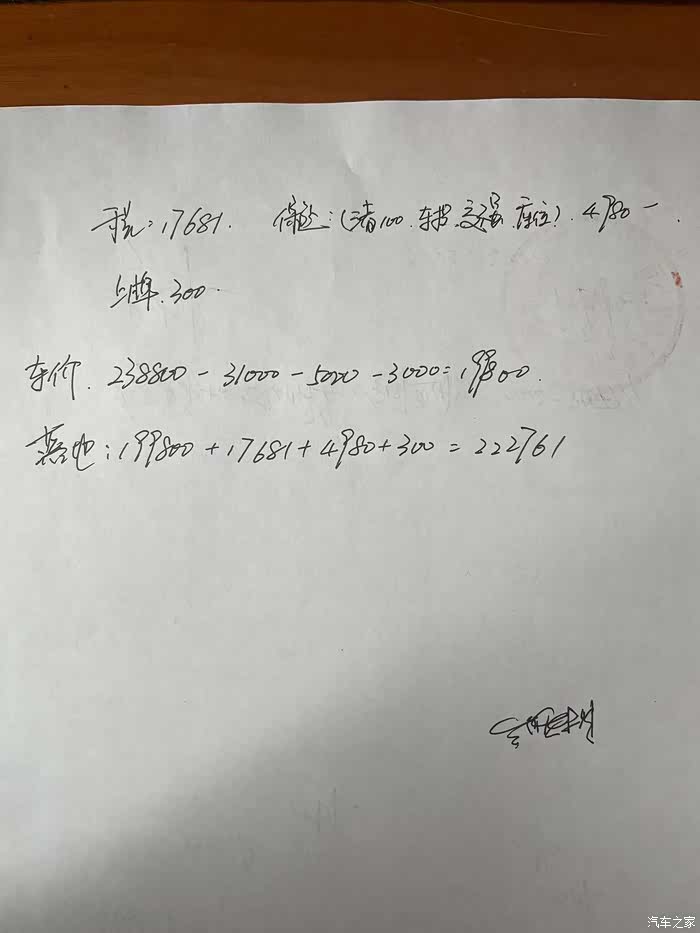 税:17681. 保险:(三者100.车损.交强.座位).4980一.
上牌.300.
车价.238800-31000-5000-3000=199800.
落地:199800+17681+4980+300=222761
汽车之家